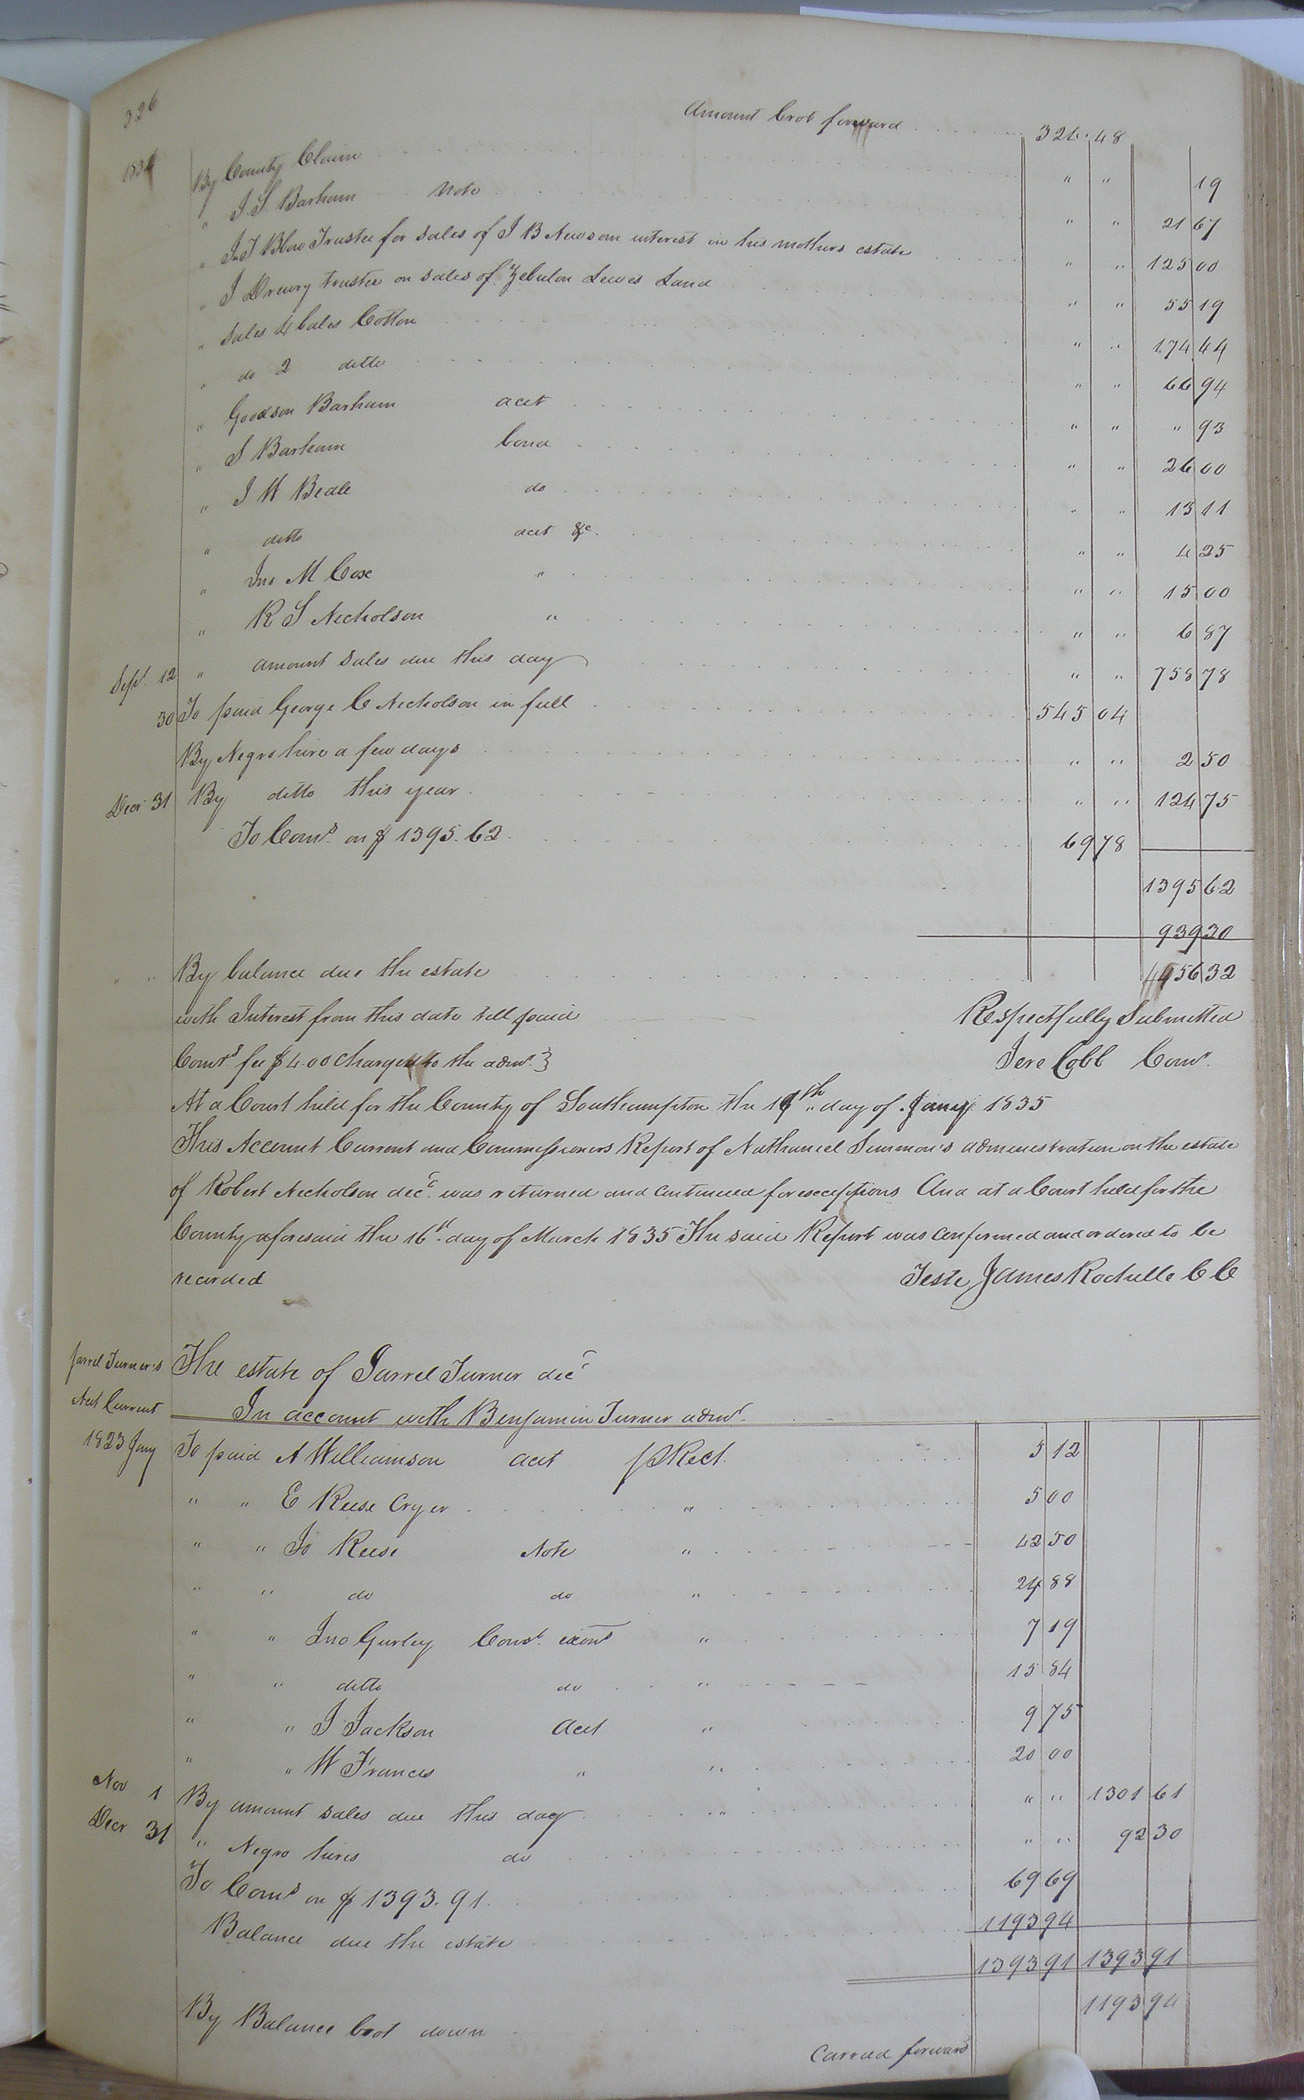 326
Amount brot forward 324.48
1834 By County Claim " " 19
" J. S. Barham Note " " 21 67
" J. T. Blow Trustee for sales of J B Newsom interest in his mothers estate " " 125 00
" J Drewry trustee on sales of Zebulon Lewis Land " " 55 19
" Sales 4 bales Cotton " " 174 44
" do 2 ditto " " 66 94
" Goodson Barham acct " " " 93
" S Barham bond " " 26 00
" J W Beale do " " 13 11
" ditto acct &c. " " 4 25
" Jno M Cox " " " 15 00
" R S Nicholson " " " 6 87
Sept. 12 " amount sales due this day " " 758 78
30 To paid George C Nicholson in full 545 04
By Negro hire a few days " " 2 50
Decr 31 By ditto this year " " 124 75
To Coms. on $1395.62. 69 78
1395 62
939 30
" " By balance due the estate 456 32
with Interest from this date till paid Respectfully Submitted
Comrs. fee $4.00 charged to the admr. } Jere Cobb Comr.
At a Court held for the County of Southampton the 19th day of Jany 1835
This Account Current and Commissioners Report of Nathaniel Simmon's administration on the estate
of Robert Nicholson decd. was returned and continued for exceptions And at a Court held for the
County aforesaid the 16th. day of March 1835 The said Report was confirmed and ordered to be
recorded Teste James Rochelle C C
Jarrel Turner's The estate of Jarrel Turner decd
Acct Current In account with Benjamin Turner admr.
1823 Jany To paid A Williamson acct p Rect. 5 12
" " E Reese Cryer " 5 00
" " Jo Reese Note " 42 50
" " do do " 24 88
" " Jno Gurley Const. exons " 7 19
" " ditto do " 15 84
" " J Jackson Acct " 9 75
" " W Francis " " 20 00
Nov 1 By amount sales due this day " " " 1301 61
Decr 31 " Negro hires do " " 92 30
To Coms on $1393.91. 69 69
Balance due the estate 1193 94
1393 91 1393 91
By Balance brot down 1193 94
Carried forward